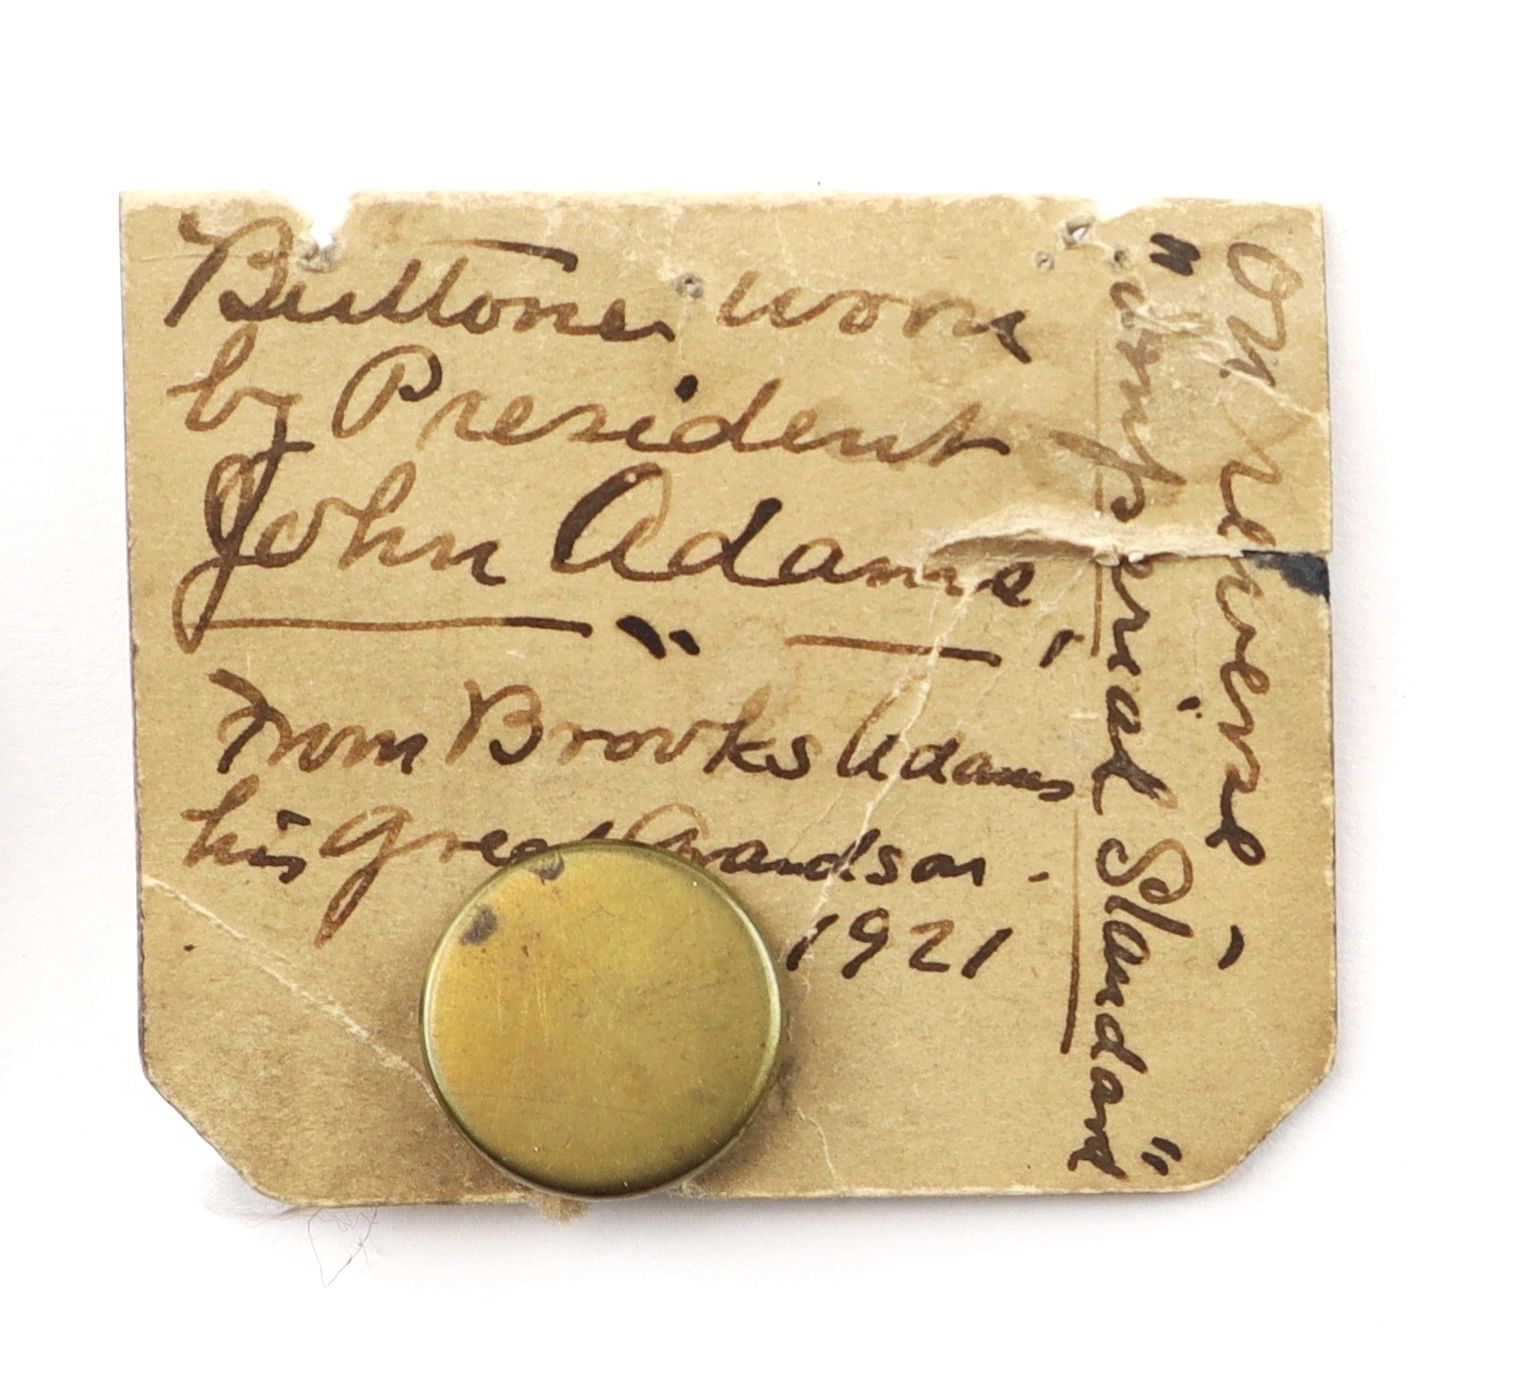 Buttons worn
by President
John Adams
" '
From Brooks Adams
his Great Grandson -
1921
On reverse,
"Imperial Standard"